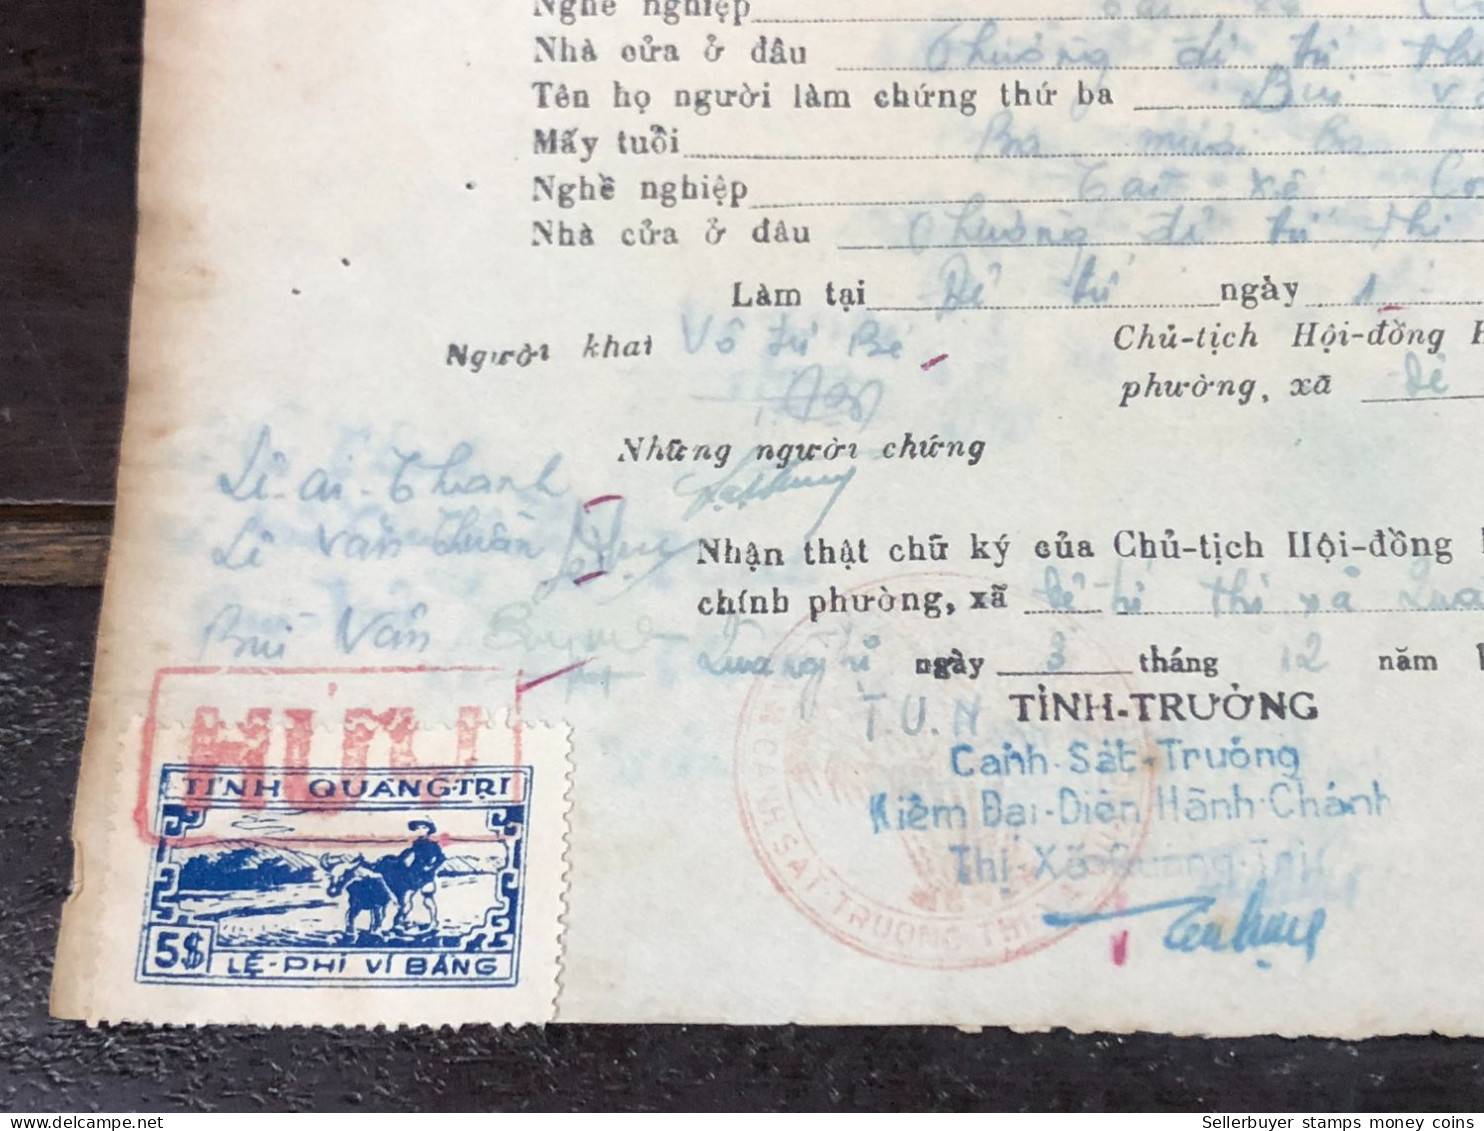 Nghề nghiệp
Nhà cửa ở đâu Phường đệ tứ thị
Tên họ người làm chứng thứ ba Bùi V
Mấy tuổi Ba mươi Ba
Nghề nghiệp Tài xế
Nhà cửa ở đâu Phường đệ tứ thị
Làm tại Đệ tứ ngày 1
Người khai Võ tứ Bé
Chủ-tịch Hội-đồng H
phường, xã đệ
Những người chứng
Lê-ai-Thanh
Lê Văn Xuân
Nhận thật chữ ký của Chủ-tịch Hội-đồng
chính phường, xã Đệ tứ thị xã Qua
Bùi Văn
Quảng trị ngày 3 tháng 12 năm 1
T.U.N TỈNH-TRƯỞNG
Cảnh-Sát-Trưởng
Kiêm Đại-Diện Hành-Chánh
Thị-Xã Quảng-Trị
CẢNH SÁT-TRƯỞNG THỊ
HỦY
TỈNH QUẢNG-TRỊ
5$
LỆ-PHÍ VI BẰNG
Sellerbuyer stamps money coins